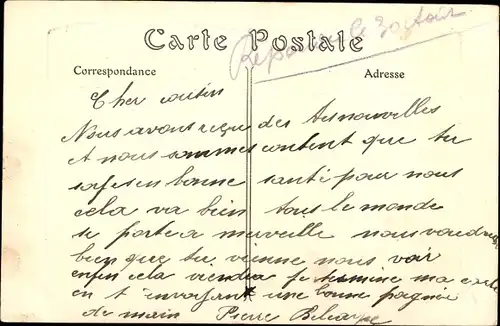 Carte Postale
Repondu le 30 Aout
Correspondance
Adresse
Cher cousin
Nous avons reçu des tes nouvelles
et nous sommes content que tu
sofes en bonne santé pour nous
cela va bien tous le monde
se porte a merveille nous voudrions
bien que tu vienne nous voir
enfin cela viendra je termine ma carte
en t'envoyant une bonne pognée
de main Pierre